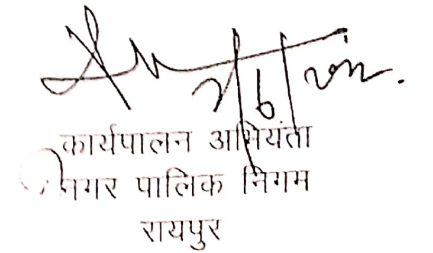 कार्यपालन अभियंता
नगर पालिक निगम
रायपुर